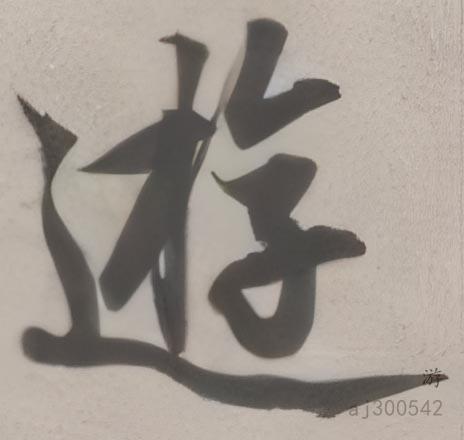 遊
游
aj300542